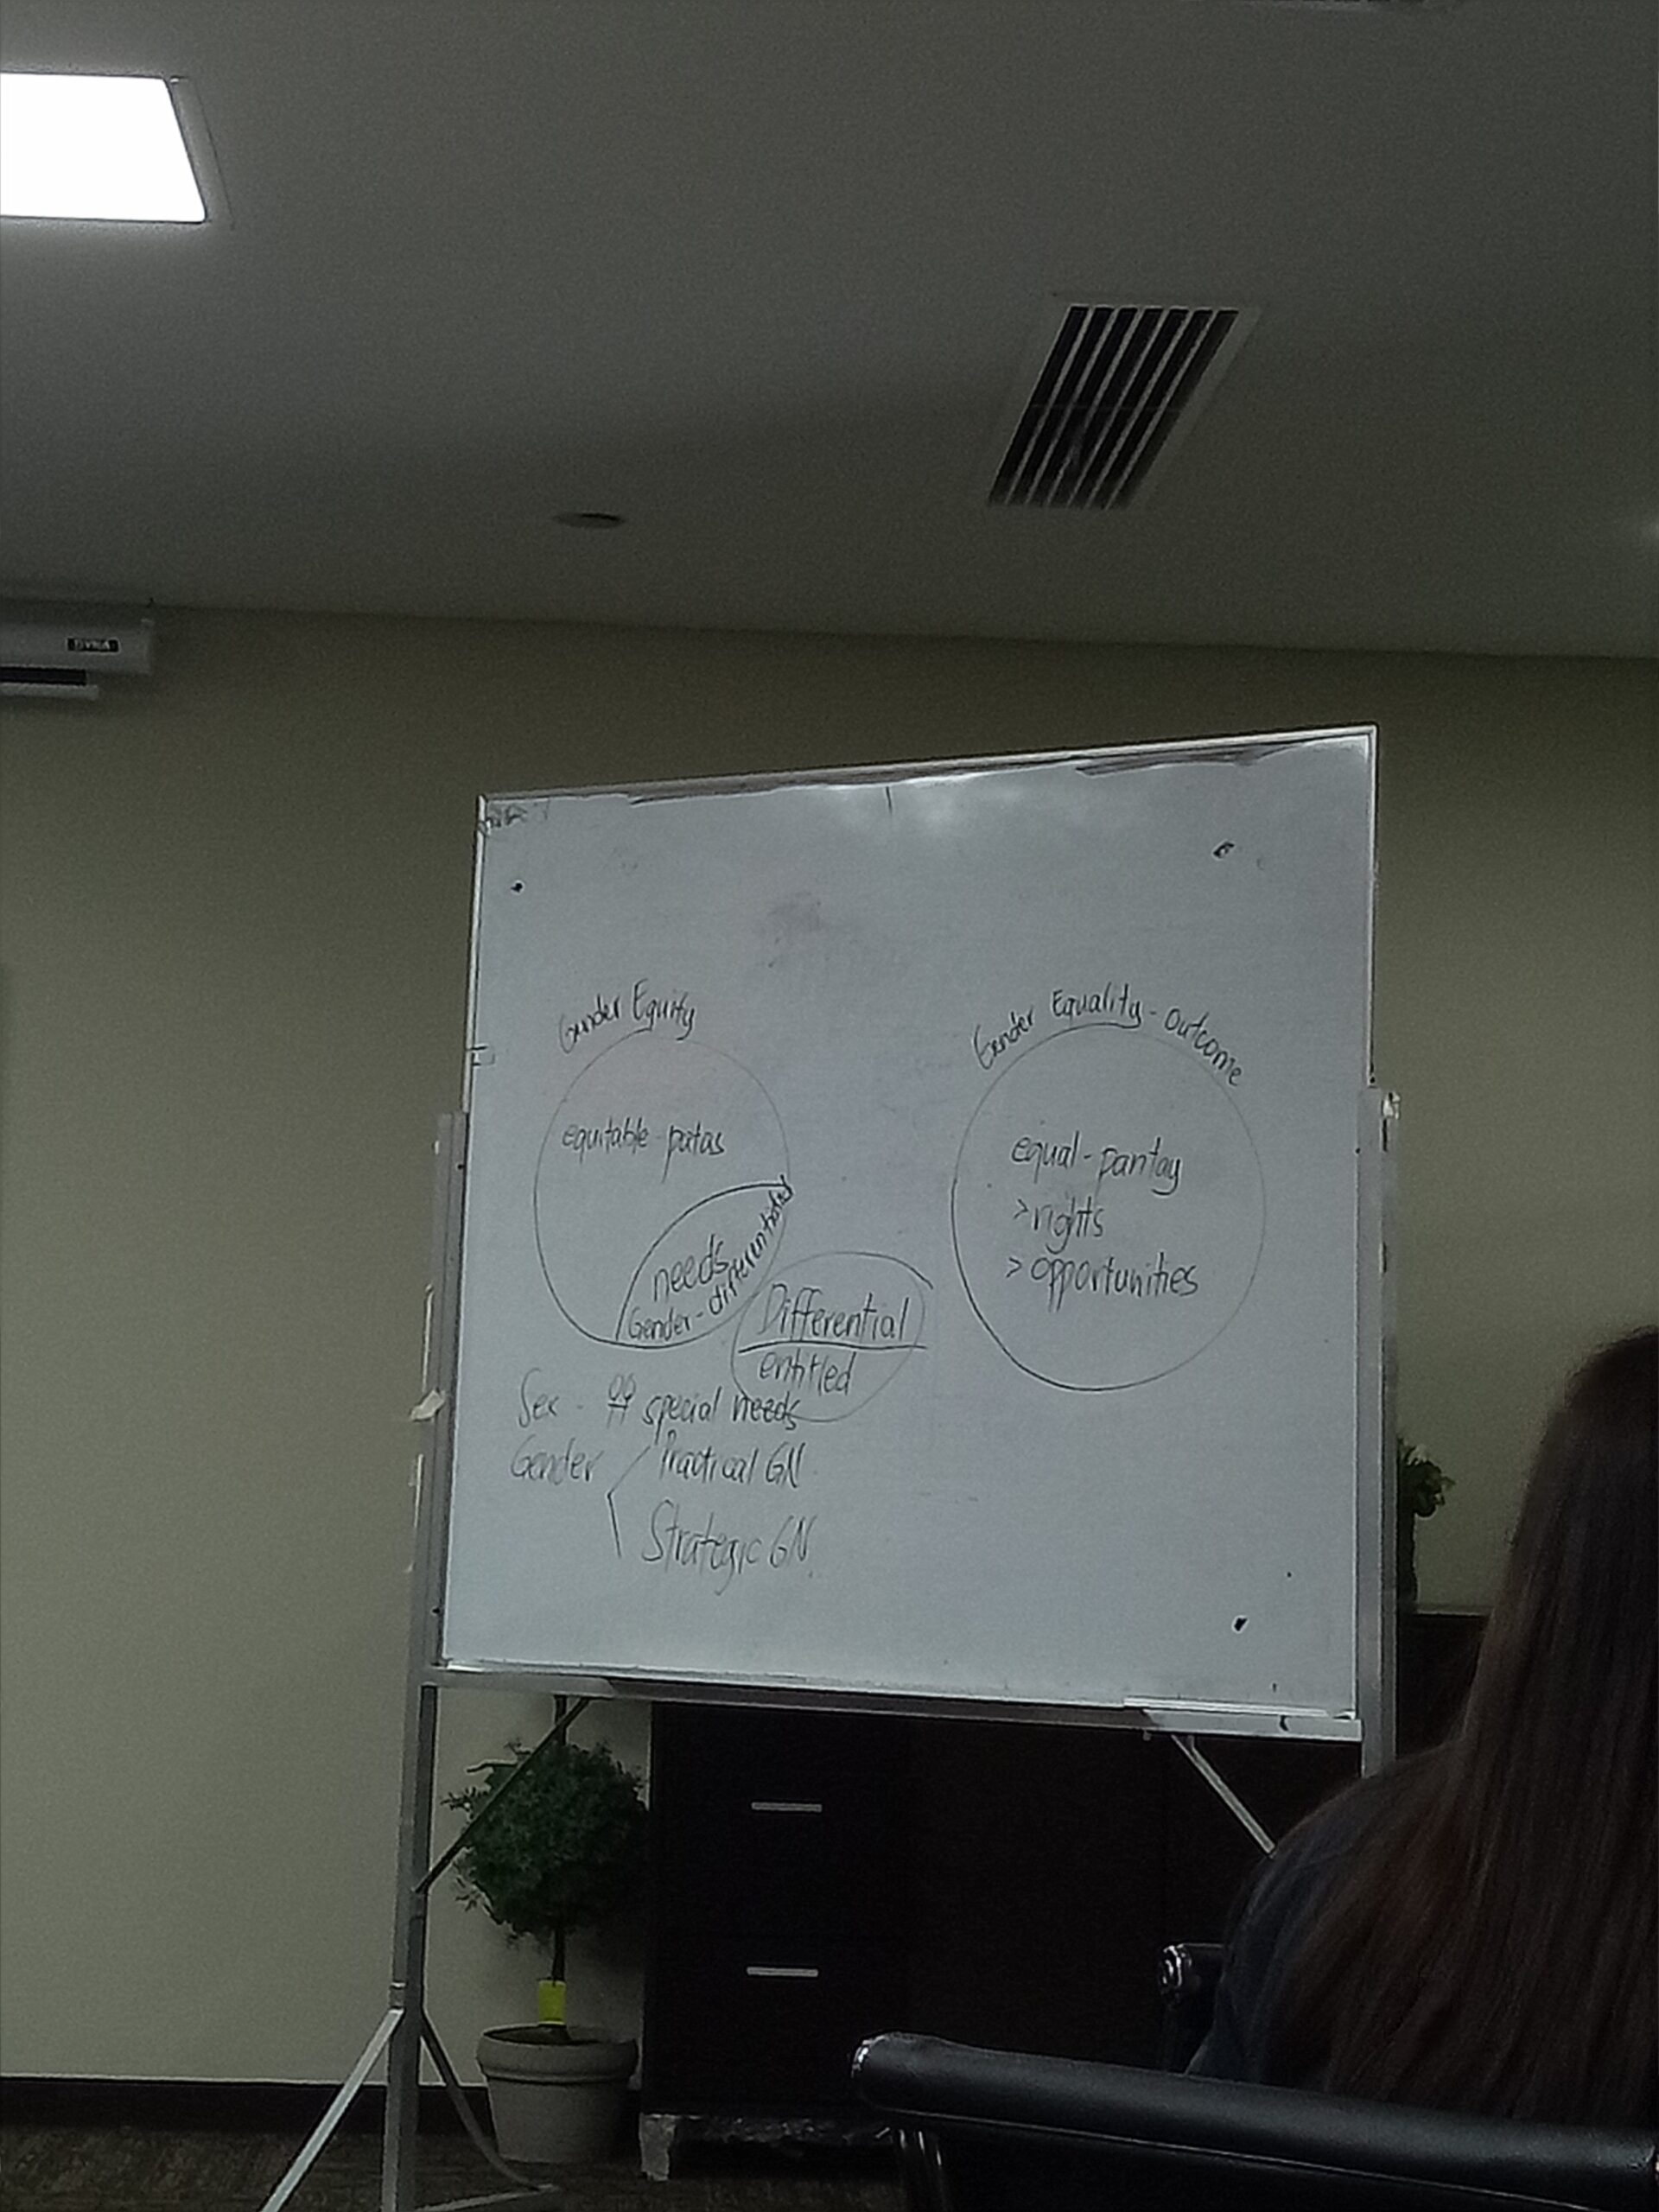 Gender Equity
equitable-patas
needs
Gender-differentiated
Differential
entitled
Sex - special needs
Gender
Practical GN
Strategic GN
Gender Equality - outcome
equal-pantay
>rights
>opportunities